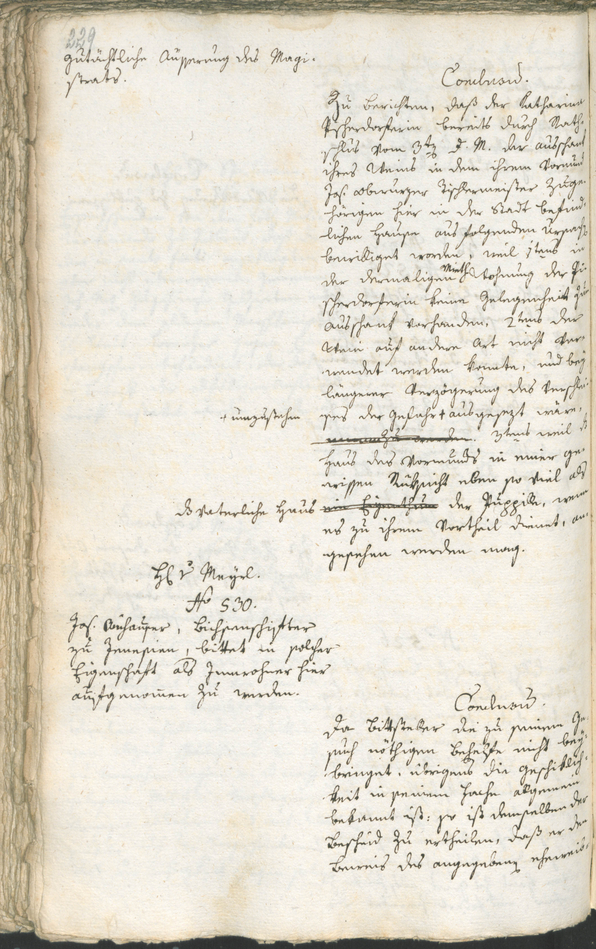 229
gutächtliche Äusserung des Magi-
strats.
Conclusum.
Zu berichten, daß der Katharina
Pscherdorferin bereits durch Rath-
schlus vom 3ten d. M. der Ausschank
ihres Weins in dem ihrem Vormund
Jos. Oberurzer Tischlermeister zuge-
hörigen hier in der Stadt befind-
lichen Hause aus folgenden Ursachen
bewilliget worden, weil 1tens in
der dermaligen Mieth Wohnung der Pu-
scherdorferin keine Gelegenheit zum
Ausschank vorhanden, 2tens der
Wein auf andere Art nicht ver-
wendet werden konnte, und bey
längerer Verzögerung des Verschlei-
ses der Gefahr + ausgesezt wäre,
+ umzustehen
3tens weil d
Haus des Vormunds in einer ge-
wissen Rüksicht eben so viel als
ds vaterliche Haus
ein Eigenthum der Puppille, wenn
es zu ihrem Vortheil dienet, an-
gesehen werden mag.
H. v. Meyrl.
No 530.
Jos. , Bichsenschifter
zu Jenesien, bittet in solcher
Eigenschaft als Innwohner hier
aufgenomen zu werden.
Conclusum.
Da Bittsteller die zu seinem Ge-
such nöthigen Behelfe nicht bey-
bringet, übrigens die Geschiklich-
keit in seinem Fache allgemein
bekannt ist: so ist demselben der
Bescheid zu ertheilen, daß er den
Beweis des angegebenen